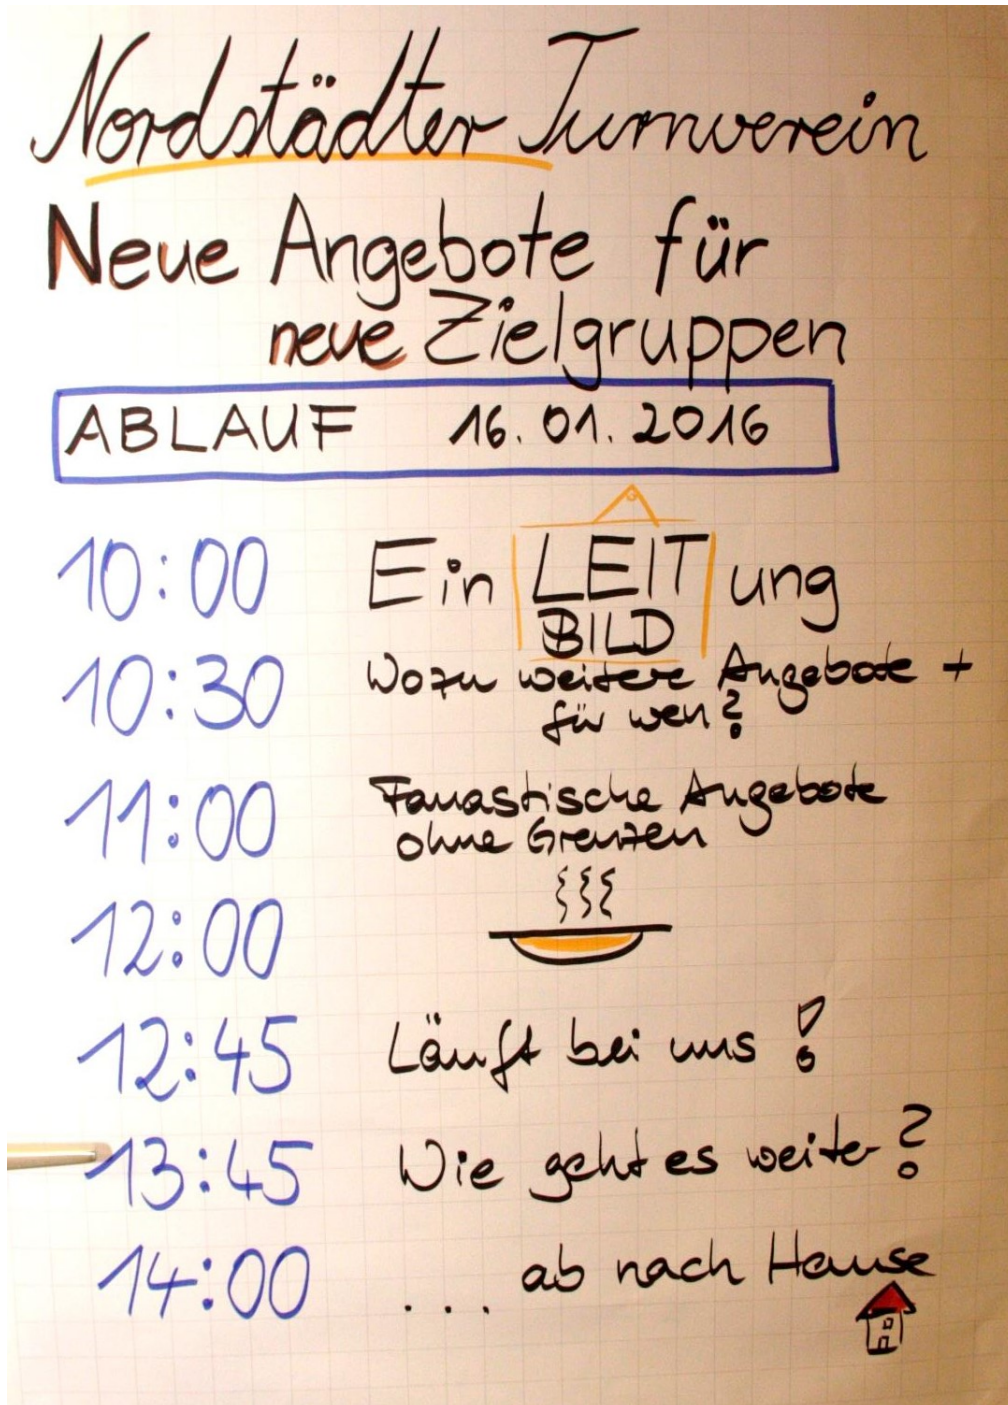 Nordstädter Turnverein
Neue Angebote für
neue Zielgruppen
ABLAUF 16.01.2016
10:00 Ein LEIT ung
BILD
10:30 Wozu weitere Angebote +
für wen?
11:00 Fanastische Angebote
ohne Grenzen
12:00
12:45 Läuft bei uns!
13:45 Wie geht es weiter?
14:00 ... ab nach Hause